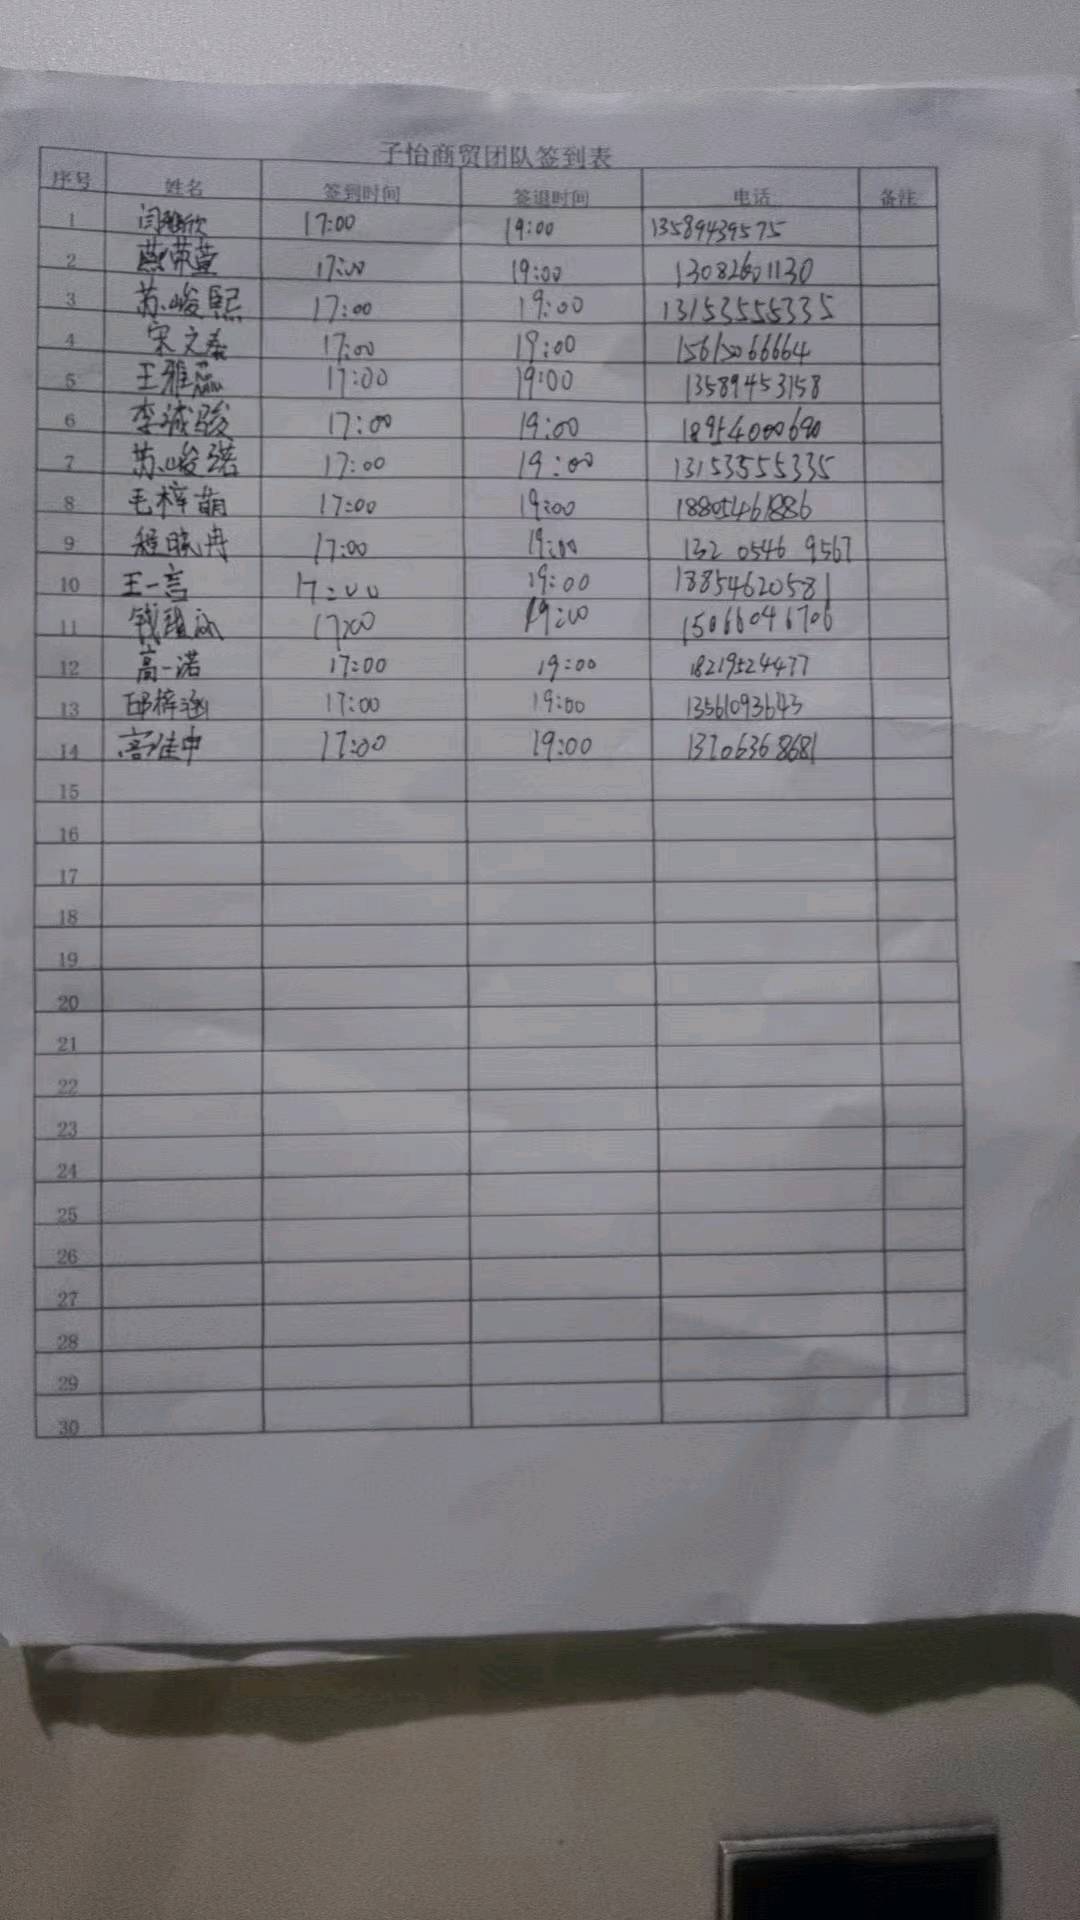 子怡商贸团队签到表
序号 姓名 签到时间 签退时间 电话 备注
1 闫 欣 17:00 19:00 13589439575
2 燕荣萱 17:00 19:00 13082601130
3 苏峻熙 17:00 19:00 13153555335
4 宋文泰 17:00 19:00 15615066664
5 王雅蕊 17:00 19:00 13589453158
6 李诚骏 17:00 19:00 18954000690
7 苏峻诺 17:00 19:00 13153555335
8 毛梓萌 17:00 19:00 18805461886
9 程晓冉 17:00 19:00 132 0546 9567
10 王一言 17:00 19:00 18854620581
11 钱 17:00 19:00 15066046706
12 高一诺 17:00 19:00 18219524477
13 邱梓涵 17:00 19:00 13561093643
14 高佳申 17:00 19:00 13706368681
15
16
17
18
19
20
21
22
23
24
25
26
27
28
29
30